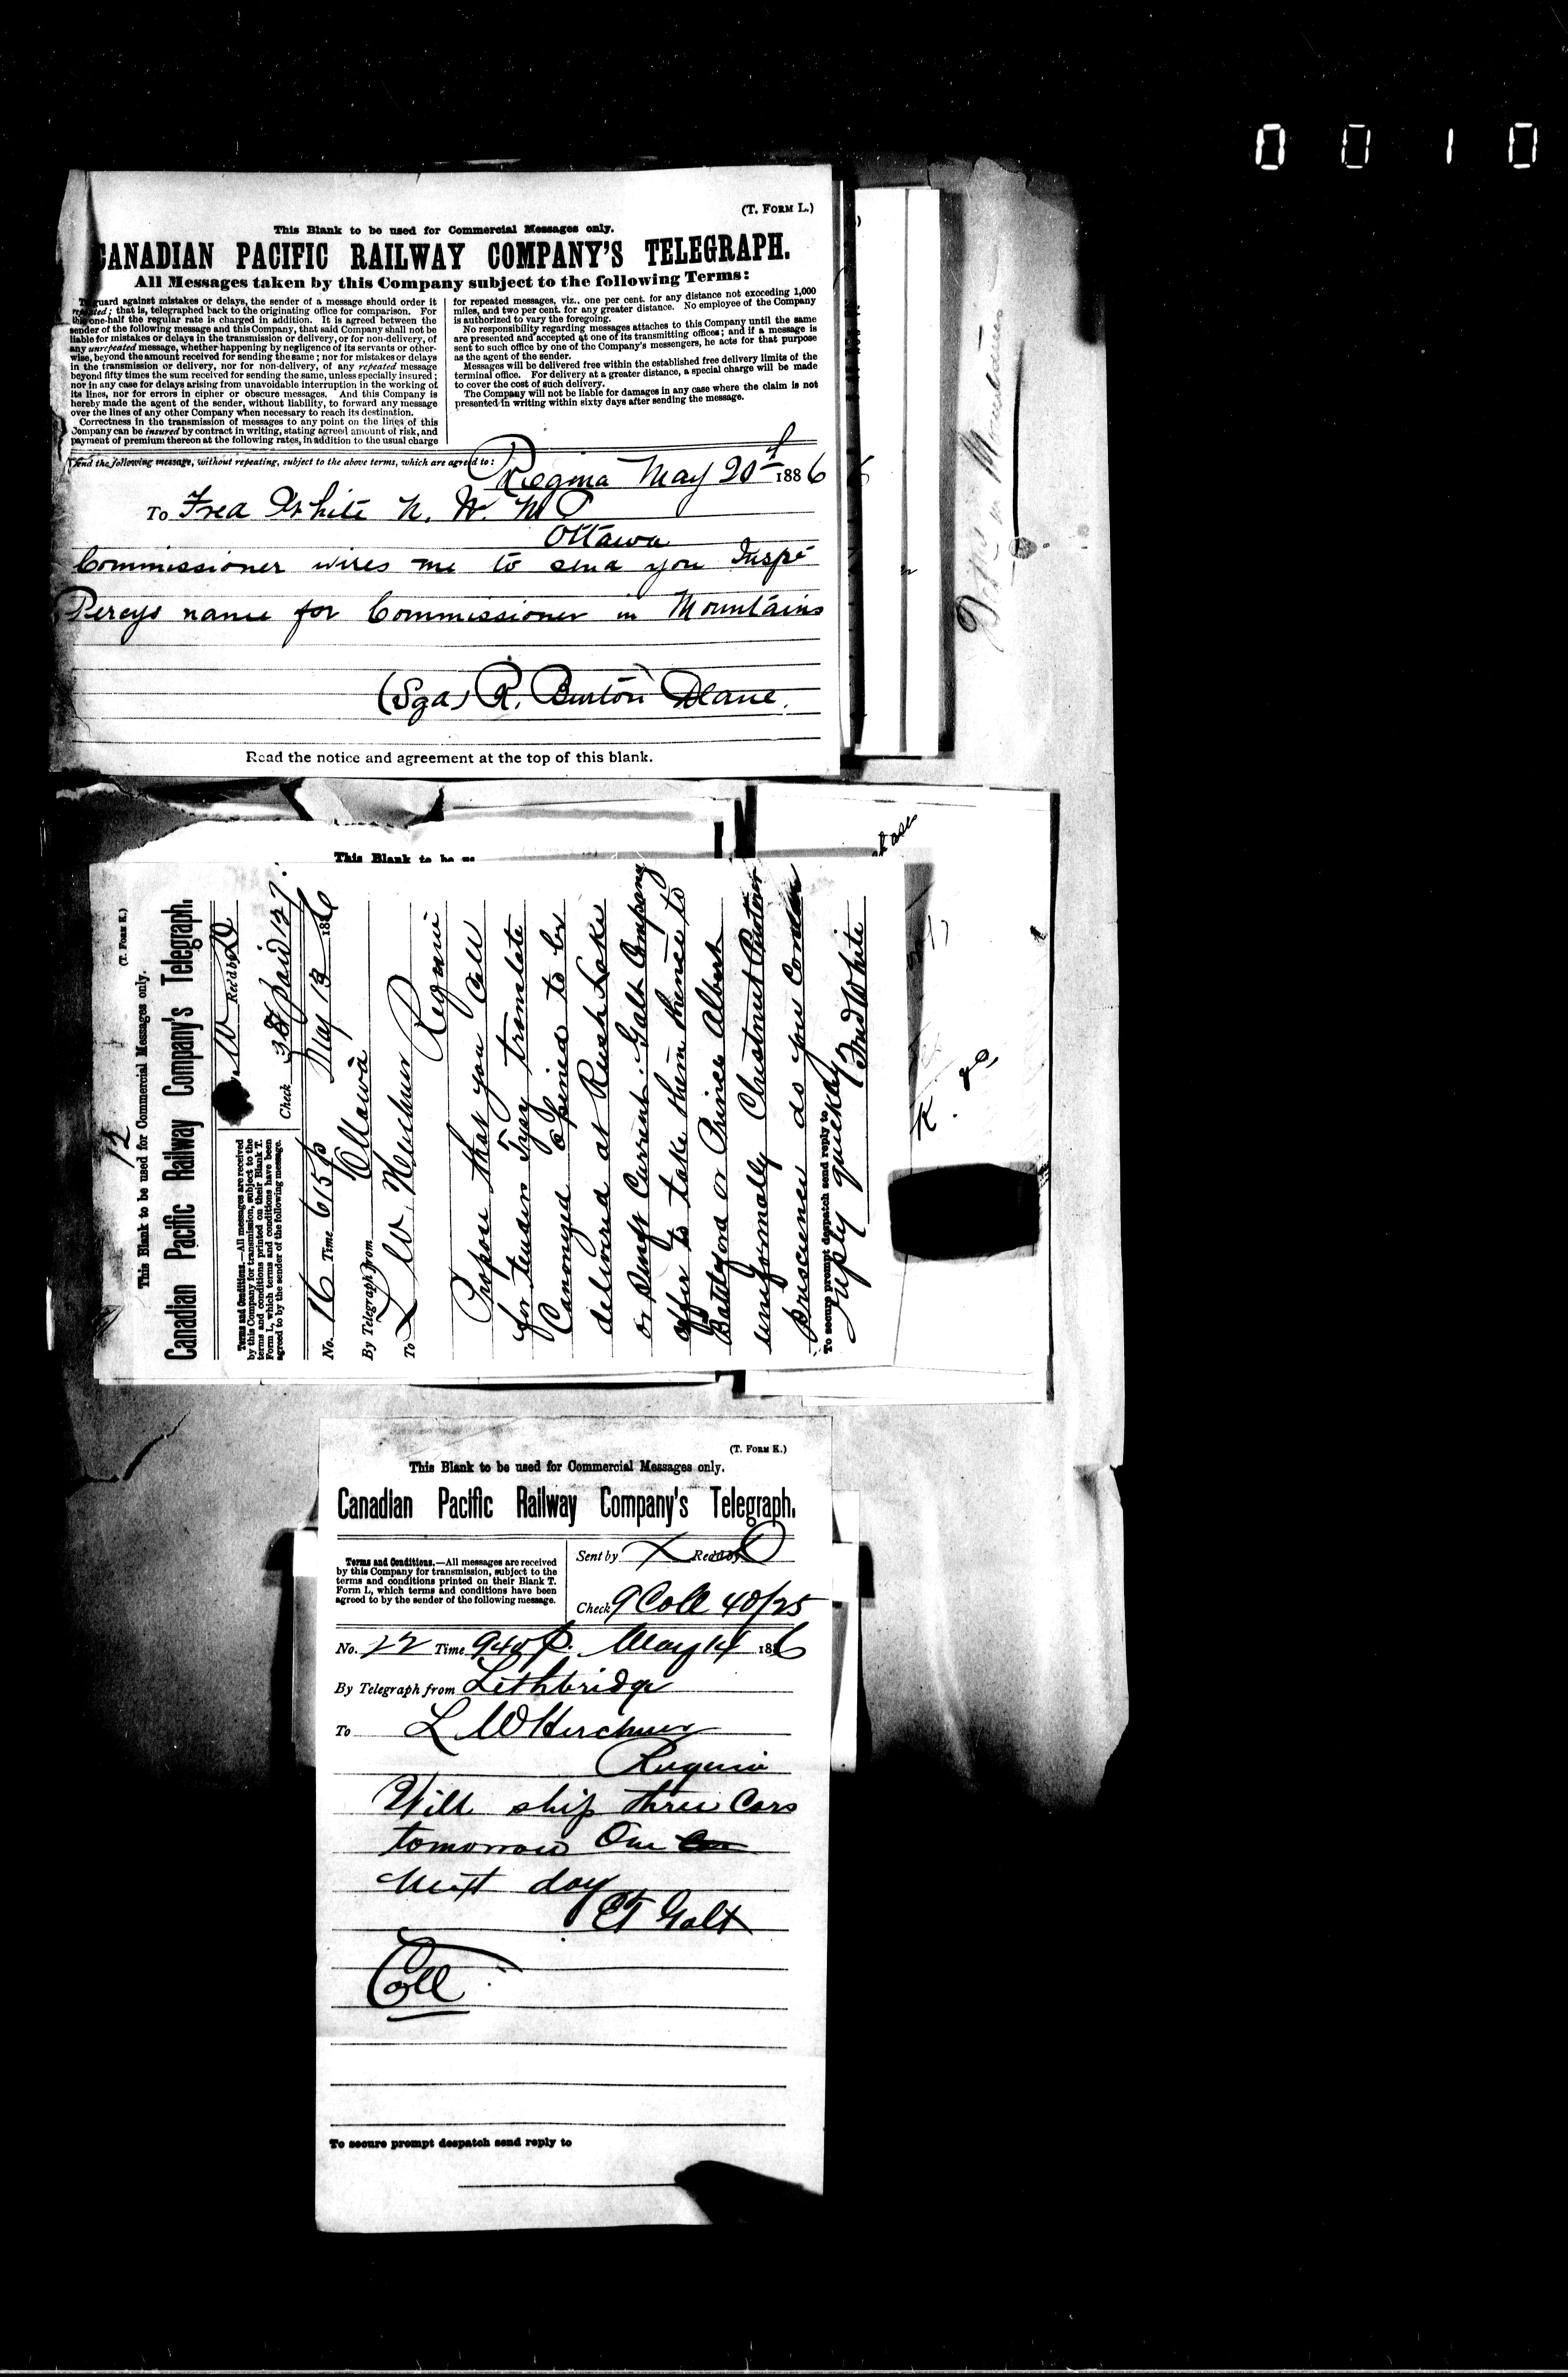 0 0 1 0
(T. FORM L.)
This Blank to be used for Commercial Messages only.
CANADIAN PACIFIC RAILWAY COMPANY'S TELEGRAPH.
All Messages taken by this Company subject to the following Terms:
To guard against mistakes or delays, the sender of a message should order it
repeated; that is, telegraphed back to the originating office for comparison. For
this one-half the regular rate is charged in addition. It is agreed between the
sender of the following message and this Company, that said Company shall not be
liable for mistakes or delays in the transmission or delivery, or for non-delivery, of
any unrepeated message, whether happening by negligence of its servants or other-
wise, beyond the amount received for sending the same; nor for mistakes or delays
in the transmission or delivery, nor for non-delivery, of any repeated message
beyond fifty times the sum received for sending the same, unless specially insured;
nor in any case for delays arising from unavoidable interruption in the working of
its lines, nor for errors in cipher or obscure messages. And this Company is
hereby made the agent of the sender, without liability, to forward any message
over the lines of any other Company when necessary to reach its destination.
Correctness in the transmission of messages to any point on the lines of this
Company can be insured by contract in writing, stating agreed amount of risk, and
payment of premium thereon at the following rates, in addition to the usual charge
for repeated messages, viz., one per cent. for any distance not exceeding 1,000
miles, and two per cent. for any greater distance. No employee of the Company
is authorized to vary the foregoing.
No responsibility regarding messages attaches to this Company until the same
are presented and accepted at one of its transmitting offices; and if a message is
sent to such office by one of the Company's messengers, he acts for that purpose
as the agent of the sender.
Messages will be delivered free within the established free delivery limits of the
terminal office. For delivery at a greater distance, a special charge will be made
to cover the cost of such delivery.
The Company will not be liable for damages in any case where the claim is not
presented in writing within sixty days after sending the message.
Send the following message, without repeating, subject to the above terms, which are agreed to:
Regina May 20 1886
To Fred White N. W. M P
Ottawa
Commissioner wires me to send you Inspr
Percys name for Commissioner in Mountains
(Sgd) R. Burton Deane.
Read the notice and agreement at the top of this blank.
in Mountains
This Blank to be us
12
(T. FORM K.)
This Blank to be used for Commercial Messages only.
Canadian Pacific Railway Company's Telegraph.
Terms and Conditions.—All messages are received
by this Company for transmission, subject to the
terms and conditions printed on their Blank T.
Form L, which terms and conditions have been
agreed to by the sender of the following message.
W Rec'd by D
Check 38 paid 127
No. 16 Time 615 p May 13 1886
By Telegraph from Ottawa
To L W Herchmer
Regina
Propose that you call
for tenders
delivered at Rush Lake
or Swift Current. Galt Company
offer to take them thence to
Battleford or Prince Albert
do you
To secure prompt despatch send reply to
reply quickly
Fred White
(T. FORM K.)
This Blank to be used for Commercial Messages only.
Canadian Pacific Railway Company's Telegraph.
Terms and Conditions.—All messages are received
by this Company for transmission, subject to the
terms and conditions printed on their Blank T.
Form L, which terms and conditions have been
agreed to by the sender of the following message.
Sent by X Rec'd by D
Check 9 Coll 40/25
No. 22 Time 940 P. May 14 1886
By Telegraph from Lethbridge
To L W Herchmer
Regina
Will ship three Cars
tomorrow One Car
next day
ET Galt
Coll
To secure prompt despatch send reply to